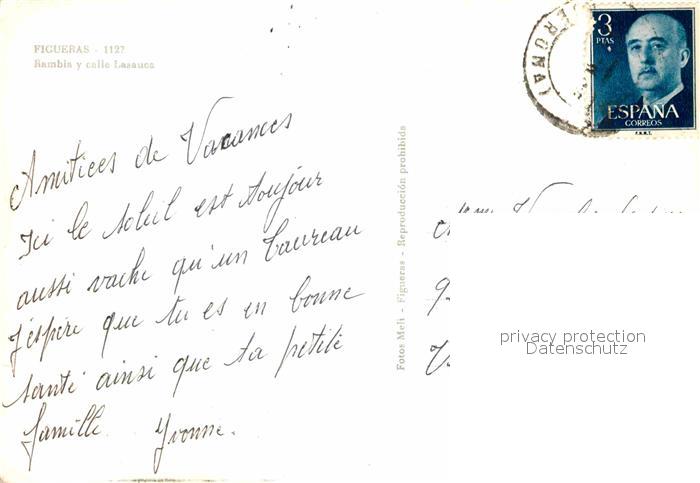 FIGUERAS - 1127
Rambla y calle Lasauca
Amitices de Vacances
Ici le soleil est toujour
aussi vache qu'un taureau
J'espère que tu es en bonne
santé ainsi que ta petite
famille. Yvonne.
Fotos Meli - Figueras - Reproducción prohibida
GERONA
3
PTAS
ESPAÑA
CORREOS
F.N.M.T.
privacy protection
Datenschutz